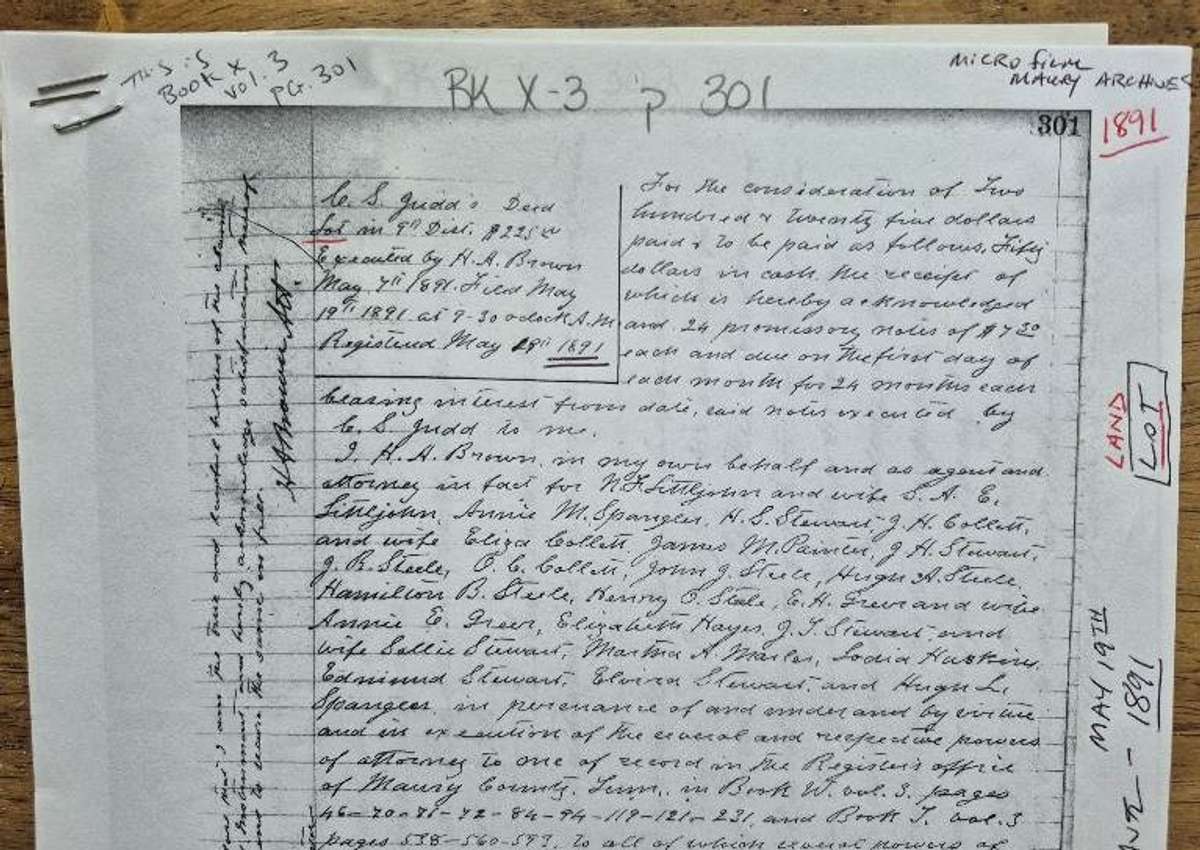 THIS IS
BOOK X
VOL. 3
PG. 301
BK X-3 p 301
MICRO FILM
MAURY ARCHIVES
301
1891
C. S. Judd's Deed
Lot in 9th Dist. $225.00
Executed by H. A. Brown
May 7th 1891. Filed May
19th 1891 at 9-30 oclock A.M
Registered May 29th 1891
For the consideration of Two
hundred & twenty five dollars
paid & to be paid as follows, Fifty
dollars in cash the receipt of
which is hereby acknowledged
and 24 promissory notes of $7.30
each and due on the first day of
each month for 24 months each
bearing interest from date, said notes executed by
C. S. Judd to me.
I, H. A. Brown, in my own behalf and as agent and
attorney in fact for N F Littlejohn and wife S. A. E.
Littlejohn, Annie M. Spangler, H. S. Stewart, J. H. Collett,
and wife Eliza Collett, James M. Painter, J. H. Stewart,
J. R. Steele, O. C. Collett, John J. Steele, Hugh A. Steele,
Hamilton B. Steele, Henry O. Steele, E. H. Greer and wife
Annie E. Greer, Elizabeth Hayes, J. T. Stewart and
wife Sallie Stewart, Martha A. Marlar, Sodia Haskins,
Edminud Stewart, Elvira Stewart, and Hugh L.
Spangler in persuance of and under and by virtue
and in execution of the several and respective powers
of attorney to one of record in the Registers office
of Maury County, Tenn., in Book W. vol. 3. pages
46-70-71-72-84-94-119-121-231, and Book T. vol. 3
pages 538-560-593, to all of which several powers of
true and
holders of
hereby acknowledge satisfaction
the same in full.
H A Brown Att.
LAND
LOT
MAY 19TH
- 1891